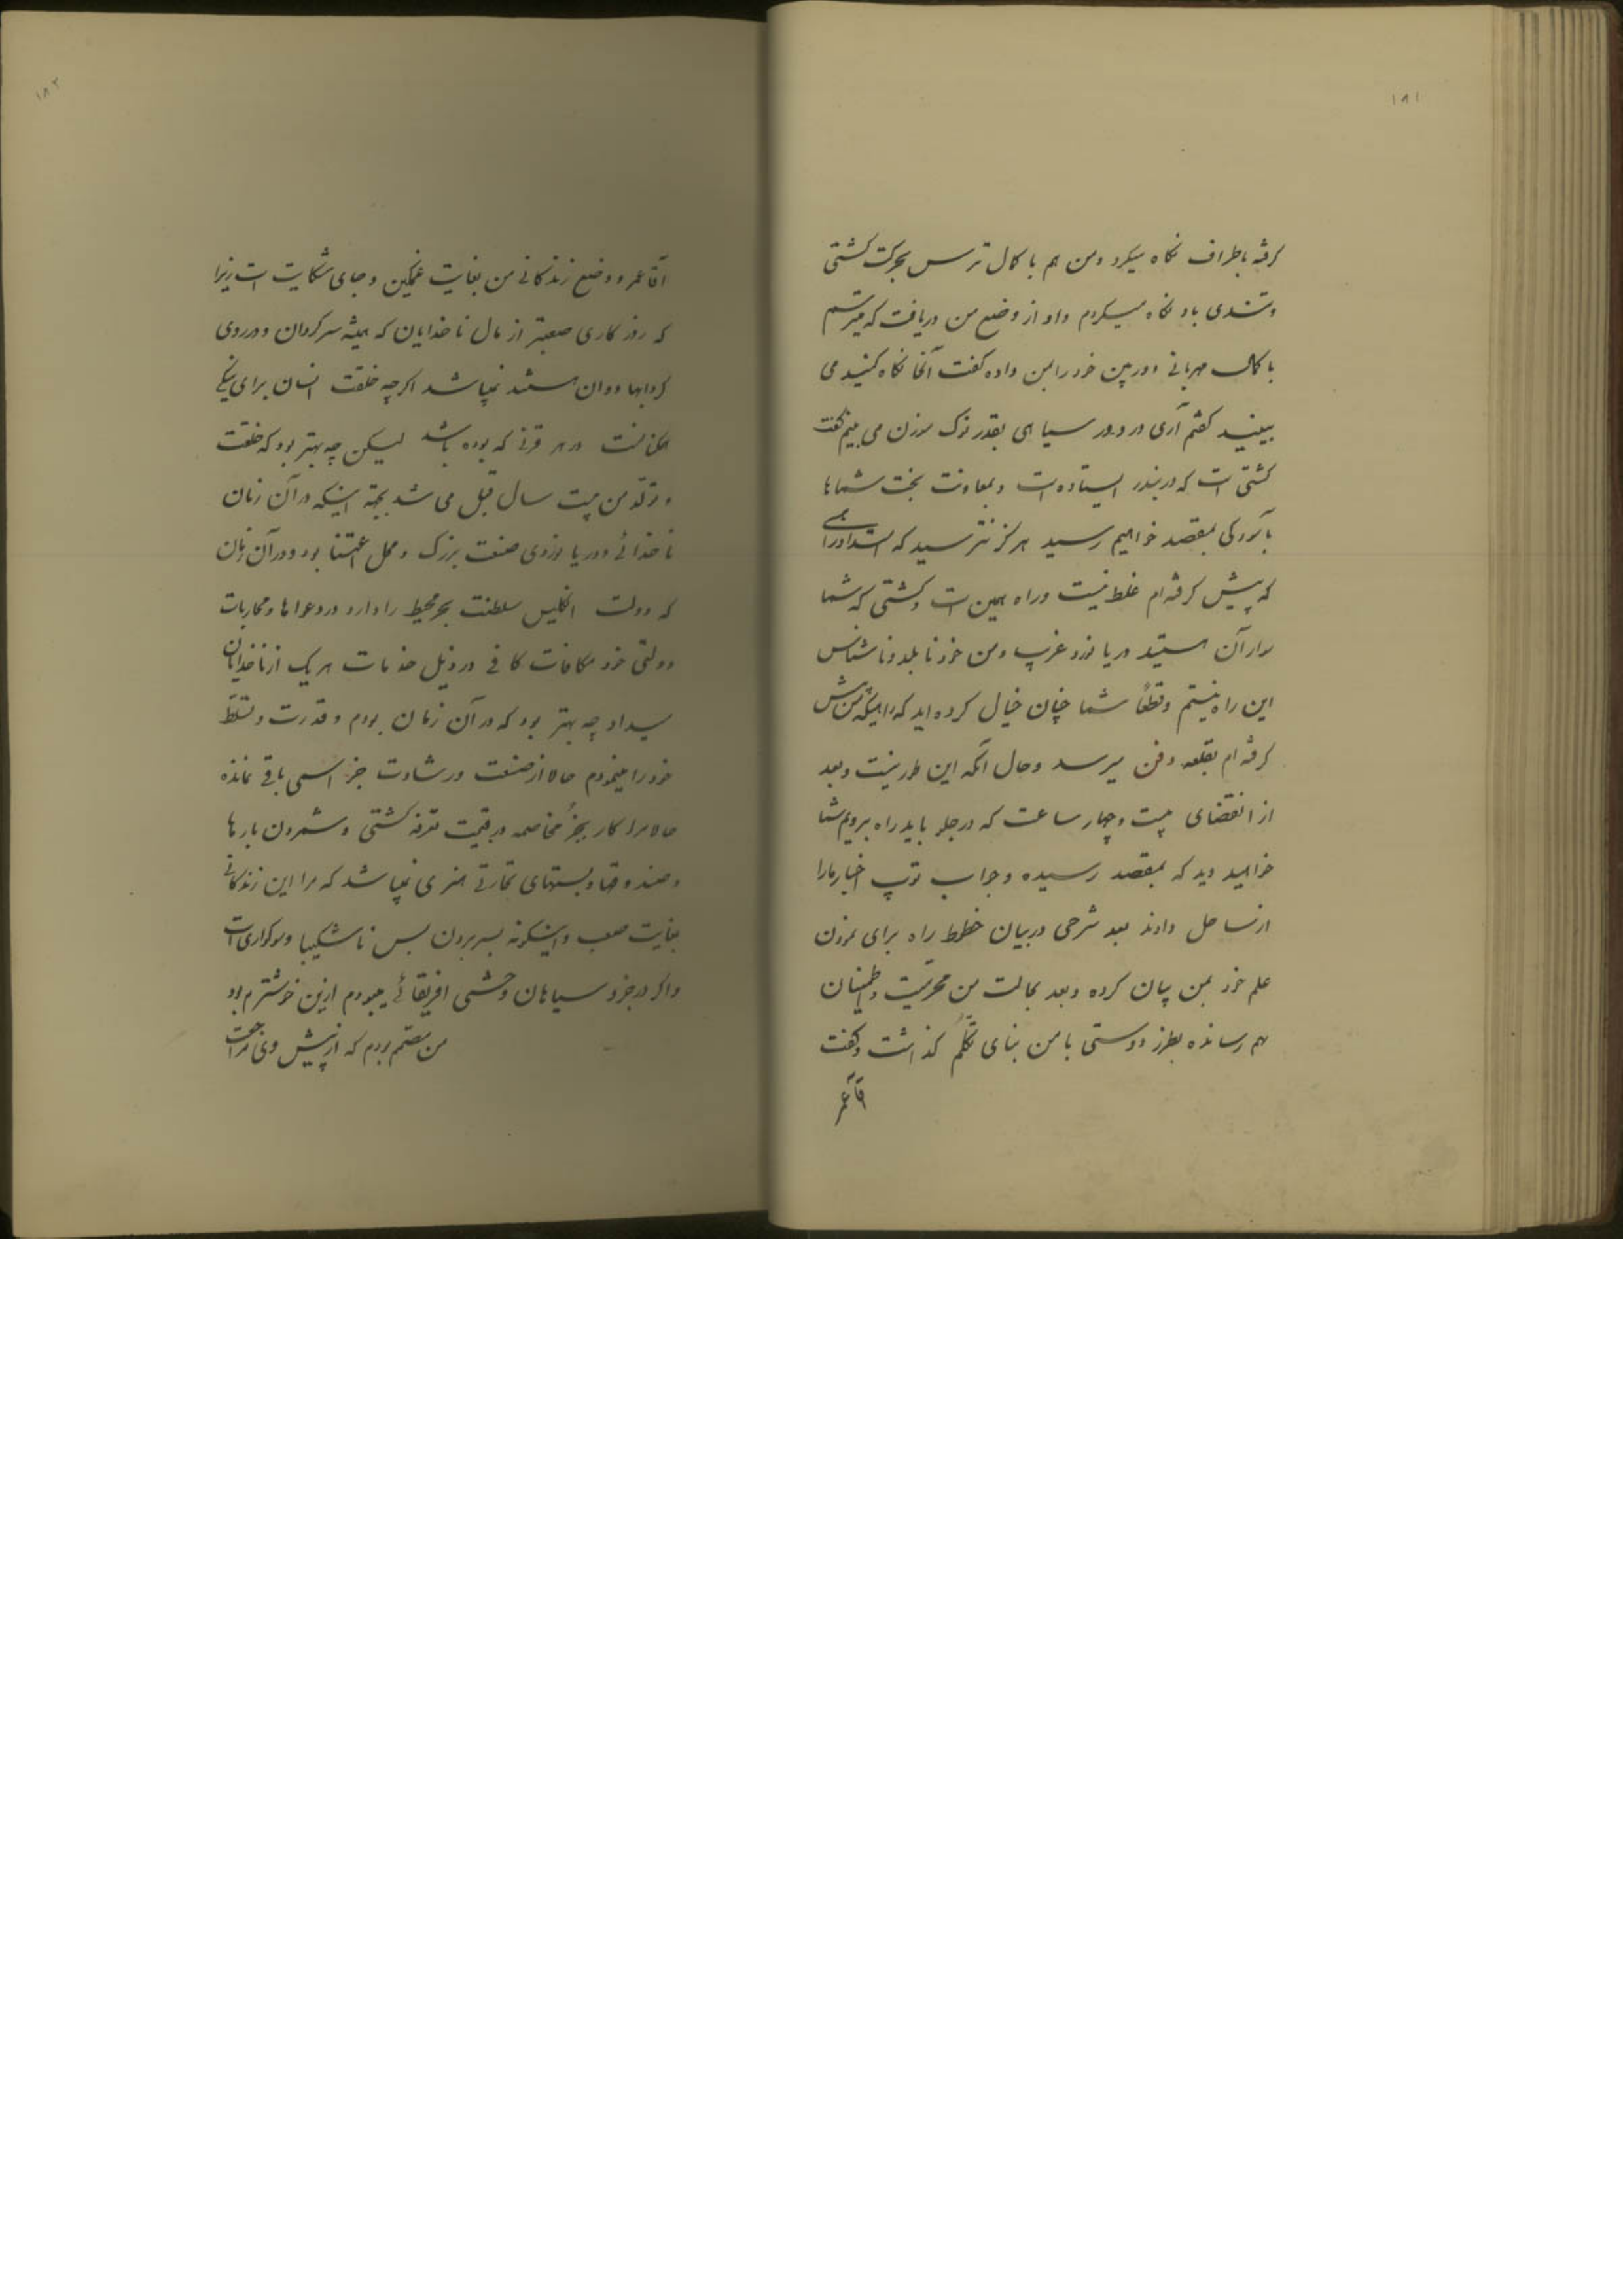 ۱۸۱
گرفته باطراف نگاه میکرد و من هم با کمال ترس بحرکت کشتی
و تندی باد نگاه میکردم و او از وضع من دریافت که میترسم
با کمال مهربانی دوربین خود را بمن داده گفت آنجا نگاه کنید می
بینید گفتم آری در دور سیاهی بقدر نوک سوزن می بینم گفت
کشتی است که در بندر ایستاده است و بمعاونت بخت شماها
بآسودگی بمقصد خواهیم رسید هرگز نترسید که راهی
که پیش گرفته‌ام غلط نیست و راه همین است و کشتی که شما
سوار آن هستید دریا نورد غریب و من خود نابلد و ناشناس
این راه نیستم و قطعاً شما چنان خیال کرده اید که راهیکه من پیش
گرفته ام بقلعه دفن میرسد و حال آنکه این طور نیست و بعد
از انقضای بیست و چهار ساعت که در جلو باید راه برویم شما
خواهید دید که بمقصد رسیده و جواب توپ اخبار ما را
از ساحل دادند بعد شرحی در بیان خطوط راه برای نمودن
علم خود بمن بیان کرده و بعد بحالت من محرمیت و اطمینان
بهم رسانده بطرز دوستی با من بنای تکلم گذاشت و گفت
آقا عمر
۱۸۲
آقا عمرو وضع زندگانی من بغایت غمگین و جای شکایت است زیرا
که روزگاری صعبتر از مال ناخدایان که همیشه سرگردان و در روی
گردابها دوان هستند نمیباشد اگرچه خلقت انسان برای
در هر قرنی که بوده باشد لیکن چه بهتر بود که خلقت
و تولد من بیست سال قبل می شد بجهة اینکه در آن زمان
ناخدائی و دریا نوردی صنعت بزرگ و محل اعتنا بود و در آن زمان
که دولت انگلیس سلطنت بحر محیط را دارد در دعواها و محاربات
دولتی خود مکافات کافی در ذیل خدمات هر یک از ناخدایان
میداد چه بهتر بود که در آن زمان بودم و قدرت و تسلط
خود را مینمودم حالا از صنعت و رشادت جز اسمی باقی نمانده
حالا مرا کار بجز مخاصمه در قیمت تعرفه کشتی و شمردن بارها
و صندوقها و بستهای تجارتی هنری نمیباشد که مرا این زندگانی
بغایت صعب و اینگونه بسر بردن بس ناشکیبا و سوگواری است
و اگر در جزو سیاهان وحشی افریقائی میبودم ازین خوشترم بود
من مصمم بودم که از پیش وی مراجعت